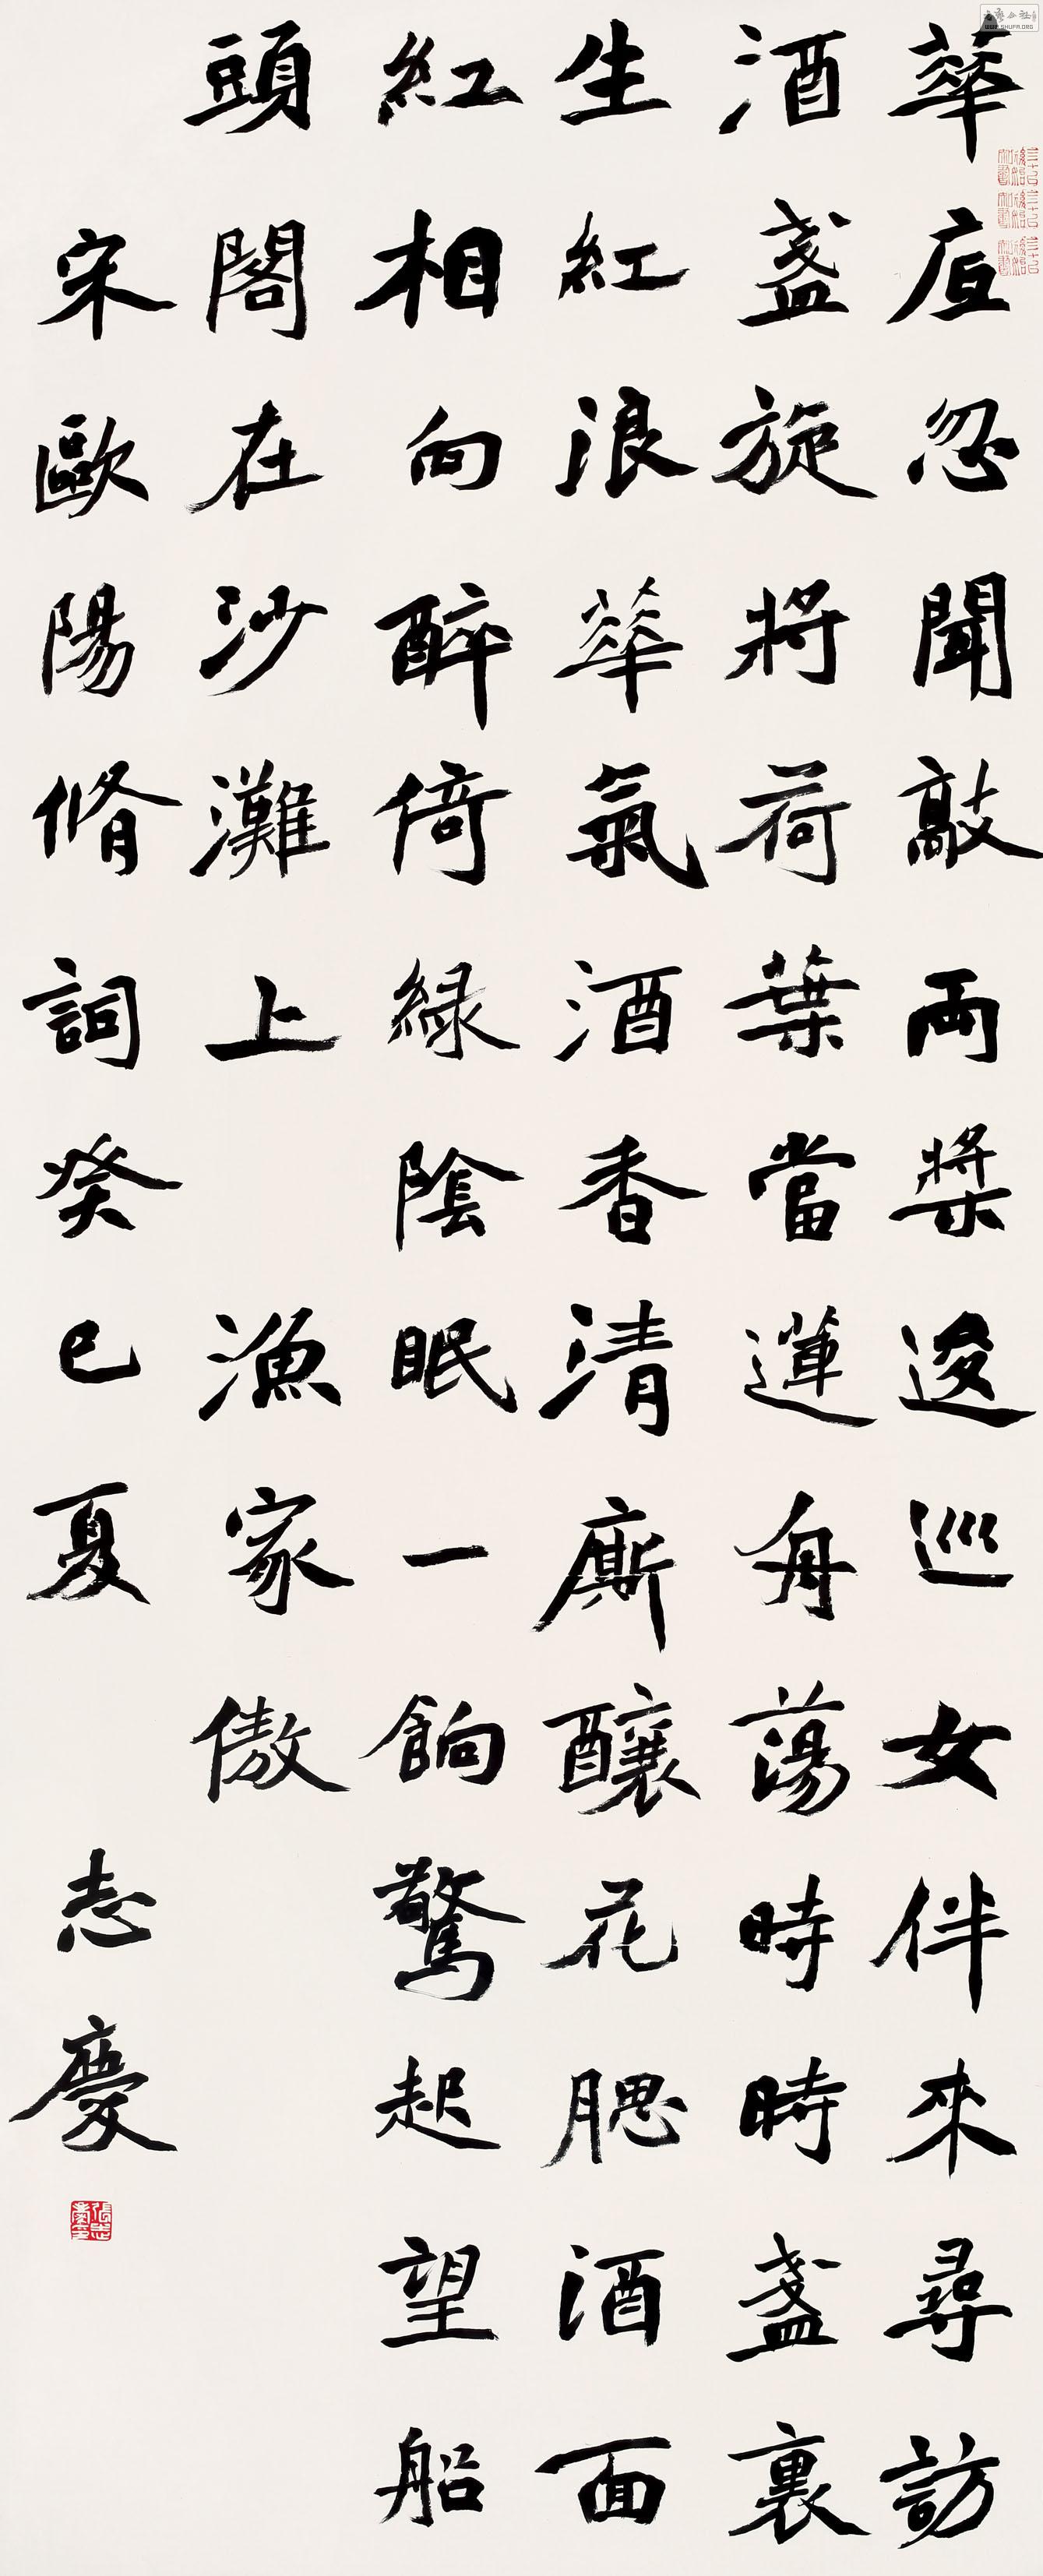 華底忽聞敲兩槳逡巡女伴來尋訪
酒盞旋將荷葉當蓮舟蕩時時盞裏
生紅浪華氣酒香清廝釀花腮酒面
紅相向醉倚緑陰眠一餉驚起望船
頭閣在沙灘上 漁家傲
宋歐陽脩詞癸巳夏 志慶
WWW.SHUFA.ORG